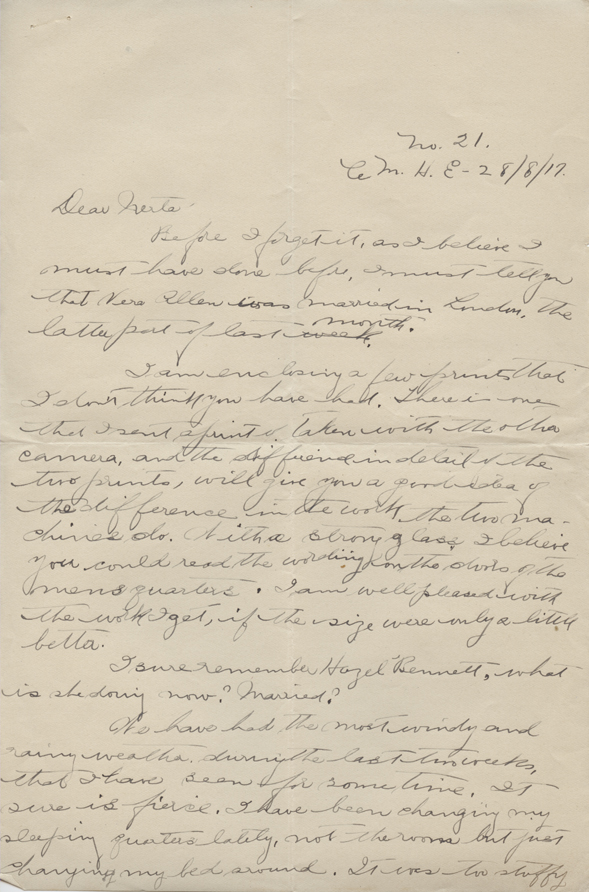 No. 21.
C. M. H. E - 28/8/17.
Dear Nerta:
Before I forget it, as I believe I
must have done befr, I must tell you
that Vera Allen was married in London, the
latter part of last week month.
I am enclosing a few prints that
I don't think you have had. There is one
that I sent a print of taken with the other
camera, and the in detail of the
two prints, will give you a good idea of
the difference in the work the two ma-
chines do. With a strong glass I believe
you could read the wording on the doors of the
mens quarters. I am well pleased with
the work I get, if the size were only a little
better.
I sure remember Hazel Bennett, what
is she doing now? Married?
We have had the most windy and
rainy weather during the last two weeks,
that I have seen for some time. It
sure is fierce. I have been changing my
sleeping quarters lately, not the room but just
changing my bed around. It was too stuffy